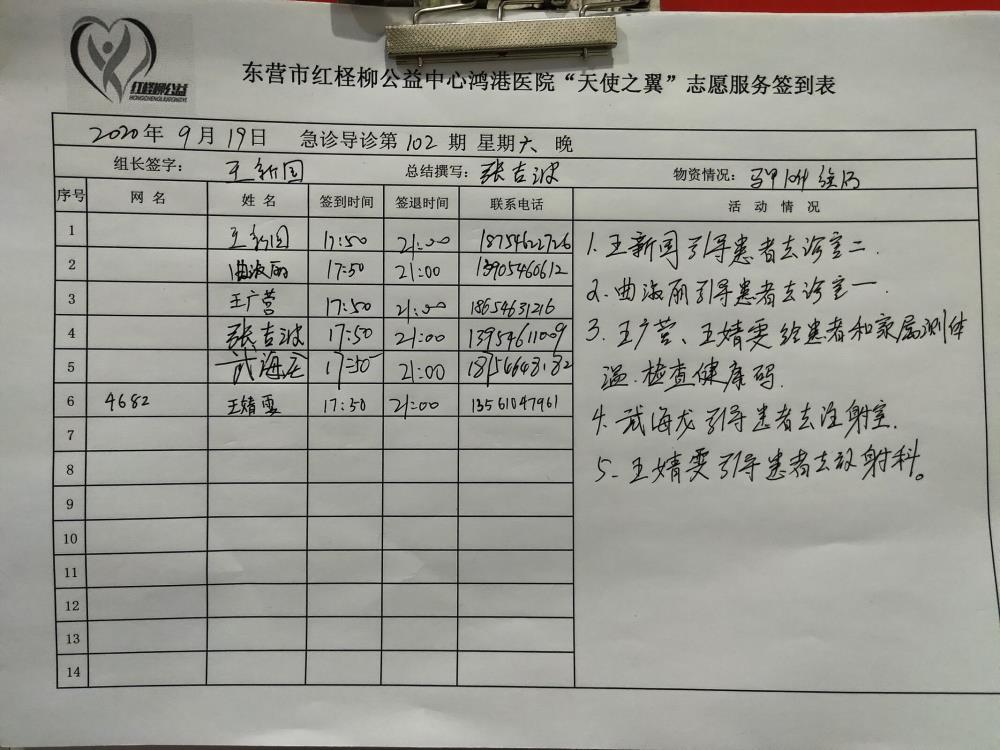 红柽柳公益
HONGCHENGLIUGONGYI
东营市红柽柳公益中心鸿港医院“天使之翼”志愿服务签到表
2020年 9月 19日 急诊导诊第 102 期 星期六 晚
组长签字： 王新国 总结撰写： 张吉波 物资情况： 马甲
序号 网 名 姓 名 签到时间 签退时间 联系电话 活 动 情 况
1 王新国 17:50 21:00 18754622726
2 曲淑丽 17:50 21:00 13905460612
3 王广营 17:50 21:00 18654631216
4 张吉波 17:50 21:00 13954611009
5 武海龙 17:50 21:00 18756648182
6 4682 王婧雯 17:50 21:00 13561047961
7
8
9
10
11
12
13
14
1. 王新国引导患者去诊室二.
2. 曲淑丽引导患者去诊室一.
3. 王广营、王婧雯给患者和家属测体
温.检查健康码.
4. 武海龙引导患者去注射室.
5. 王婧雯引导患者去放射科。